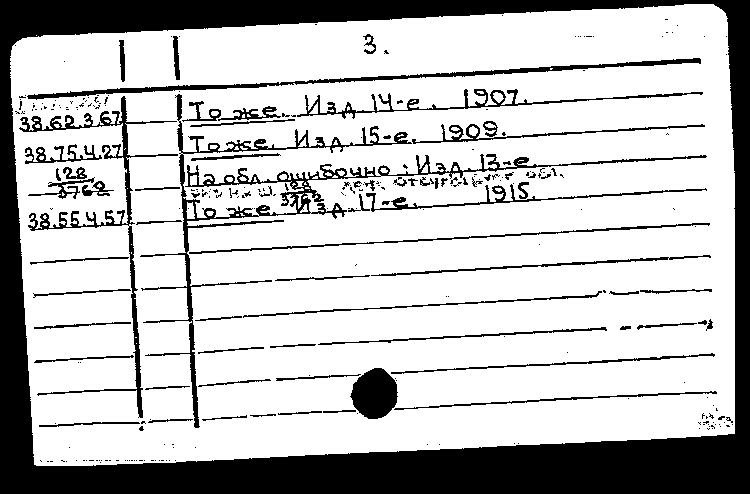 3.
38.62.3.67 То же. Изд. 14-е. 1907.
38.75.4.27 То же. Изд. 15-е. 1909.
128
3762
На обл. ошибочно: Изд. 13-е.
128
3762
отсутствует обл.
38.55.4.57 То же. Изд. 17-е. 1915.